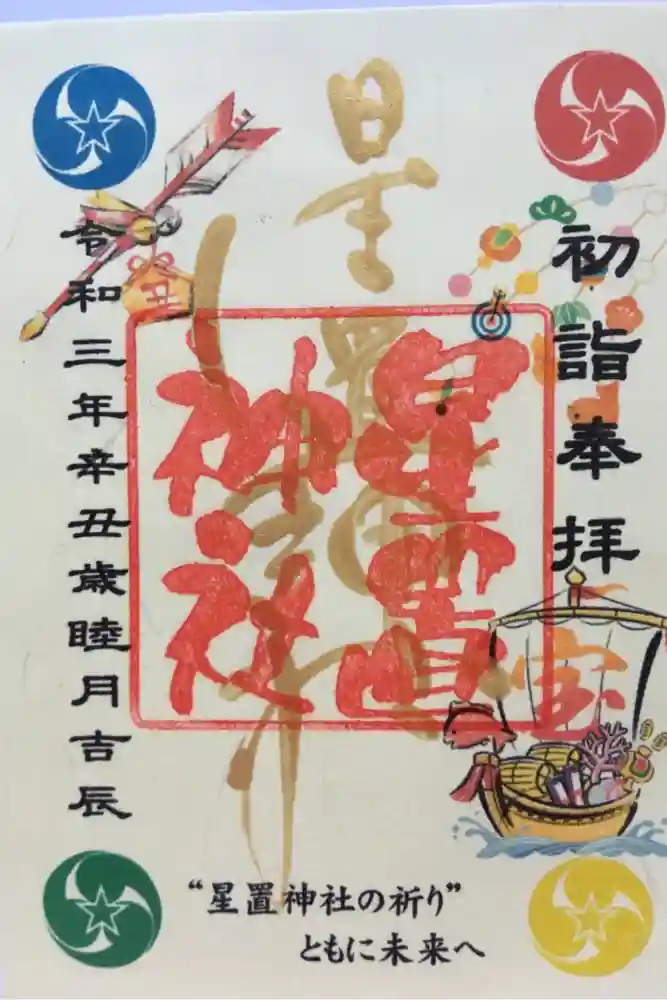 初詣奉拝
星置神社
星置
神社
丑
宝
令和三年辛丑歳睦月吉辰
“星置神社の祈り”
ともに未来へ